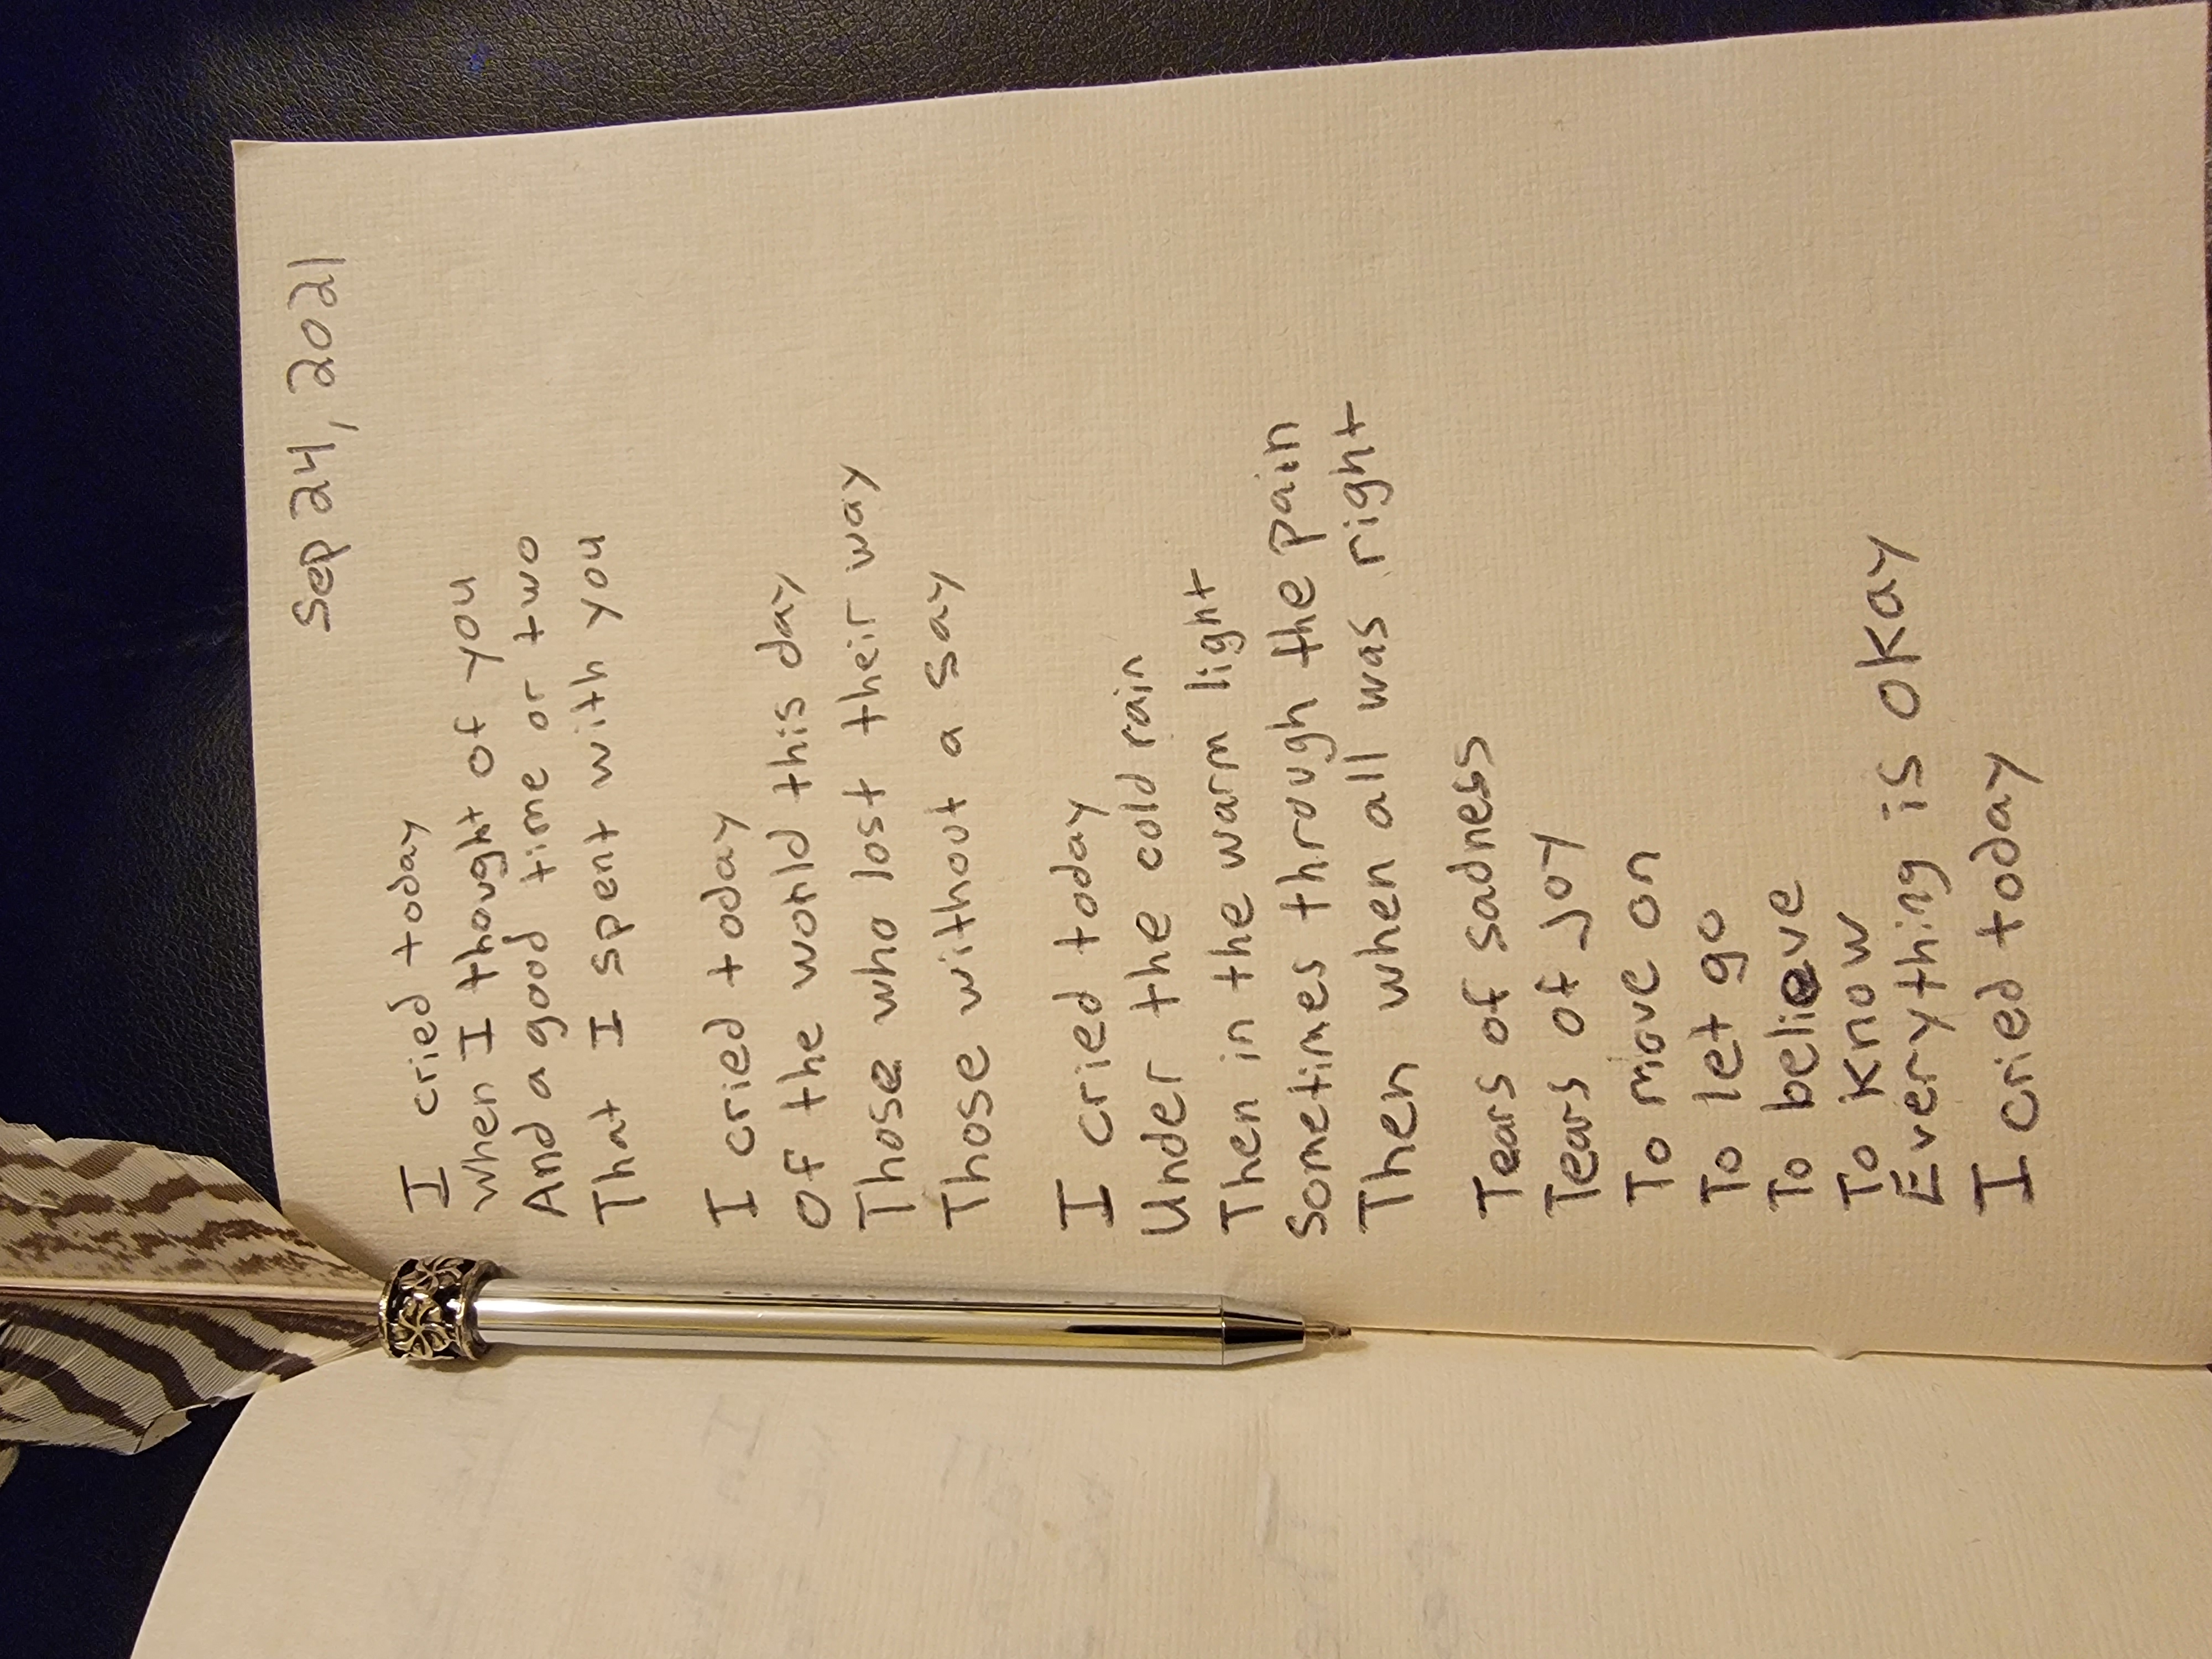 Sep 24, 2021
I cried today
When I thought of you
And a good time or two
That I spent with you
I cried today
Of the world this day
Those who lost their way
Those without a say
I cried today
Under the cold rain
Then in the warm light
Sometimes through the pain
Then when all was right
Tears of sadness
Tears of Joy
To move on
To let go
To believe
To know
Everything is okay
I cried today